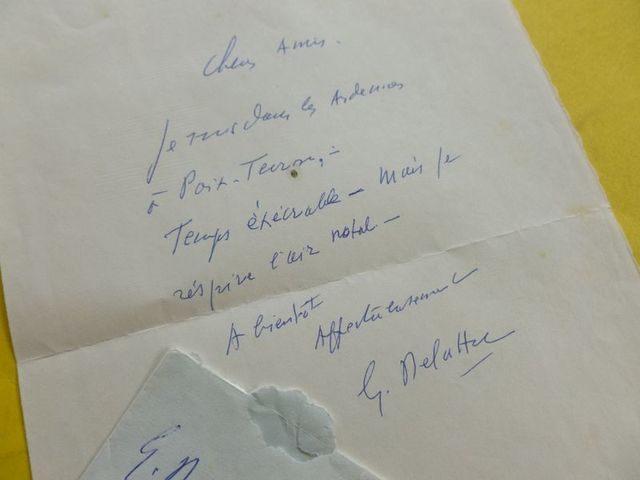 Chers Amis.
Je suis dans les Ardennes
à Poix-Terron, -
Temps éxécrable - Mais je
réspire l'air natal -
A bientôt
Affectueusement
G. Delattre